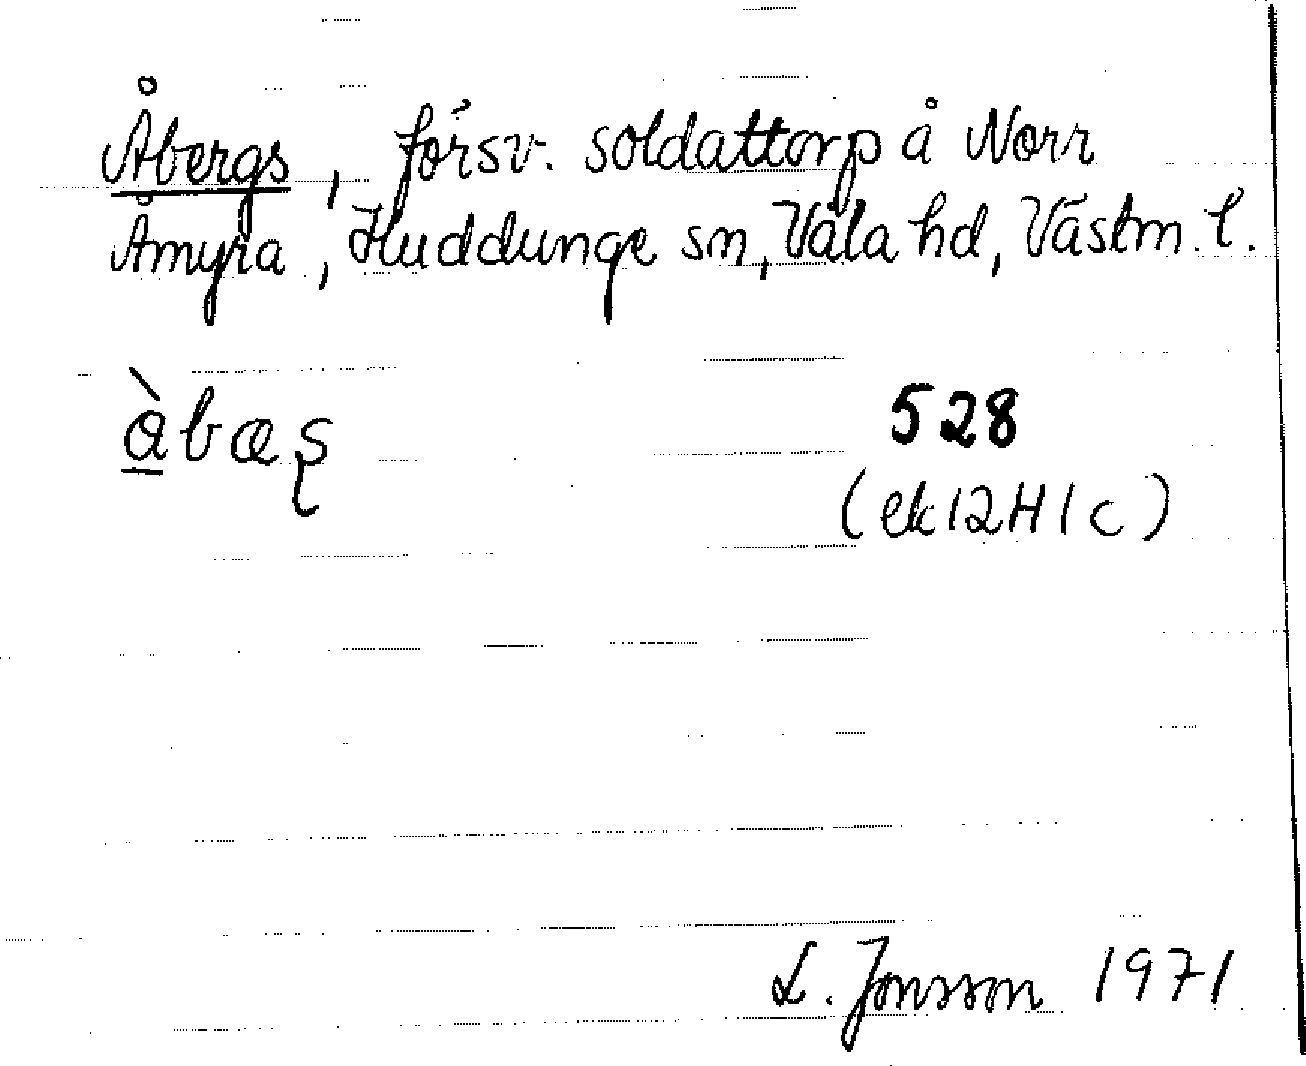 Åbergs, försv. soldattorp å Norr
Åmyra, Huddunge sn, Våla hd, Västm. l.
à̱bæʂ
528
(ek 12H1c)
L. Jonsson 1971